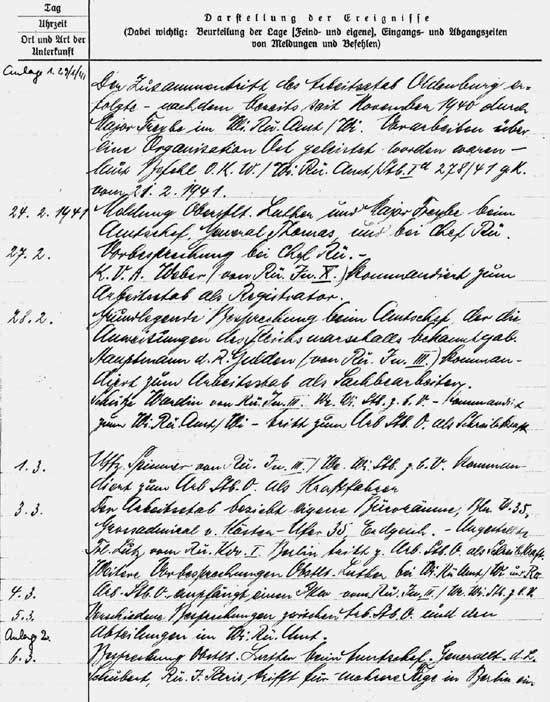 Tag
Uhrzeit
Ort und Art der
Unterkunft
Darstellung der Ereignisse
(Dabei wichtig: Beurteilung der Lage [Feind- und eigene], Eingangs- und Abgangszeiten
von Meldungen und Befehlen)
Anlag 1.
Der Zusammentritt des Arbeitsstab Oldenburg er-
folgte - nachdem bereits seit November 1940 durch
Major im Wi.Rü.Amt/Wi. Vorarbeiten über
eine Organisation Ost geleistet worden waren -
laut Befehl O.K.W./Wi.Rü.Amt/Stb.Ia 278/41 g.K.
vom 21.2.1941.
24.2.1941 Meldung Oberstlt. Luther und Major beim
Amtschef, General Thomas, und bei Chef Rü.
27.2. Vorbesprechung bei Chef Rü. -
K.V.A. Weber (von Rü. In. X.) kommandiert zum
Arbeitsstab als Registrator.
28.2. Grundlegende Besprechung beim Amtschef, der die
Anweisungen des Reichsmarschalls bekanntgab.
Hauptmann d.R. (von Rü. In. III.) komman-
diert zum Arbeitsstab als Sachbearbeiter.
Schütze von Rü. In. III. We. Wi. Stb. z.b.V. - kommandiert
zum Wi.Rü.Amt/Wi - tritt zum Arb.Stb.O. als Schreibkraft
1.3. Uffz. von Rü. In. III/We. Wi. Stb. z.b.V. komman-
diert zum Arb.Stb.O. als Kraftfahrer
3.3. Der Arbeitsstab bezieht eigene Büroräume, Bln W.35,
Grossadmiral v. Köster-Ufer 35, Erdgesch. - Angestellte
Frl. Lutz, vom Rü. Kdo. I Berlin tritt z. Arb.Stb.O. als Schreibkraft.
Weitere Vorbesprechungen Obstlt. Luther bei Wi.Rü.Amt/Wi und Ro
4.3. Arb.Stb.O. empfängt einen Pkw vom Rü. In. III/We.Wi.Stb. z.b.V.
5.3. Verschiedene Besprechungen zwischen Arb.Stb.O. und den
Anlag 2. Abteilungen im Wi.Rü.Amt.
6.3. Besprechung Obstlt. Luther beim Amtschef. Generallt.
Schubert, Rü. J. Paris, trifft für mehrere Tage in Berlin ein